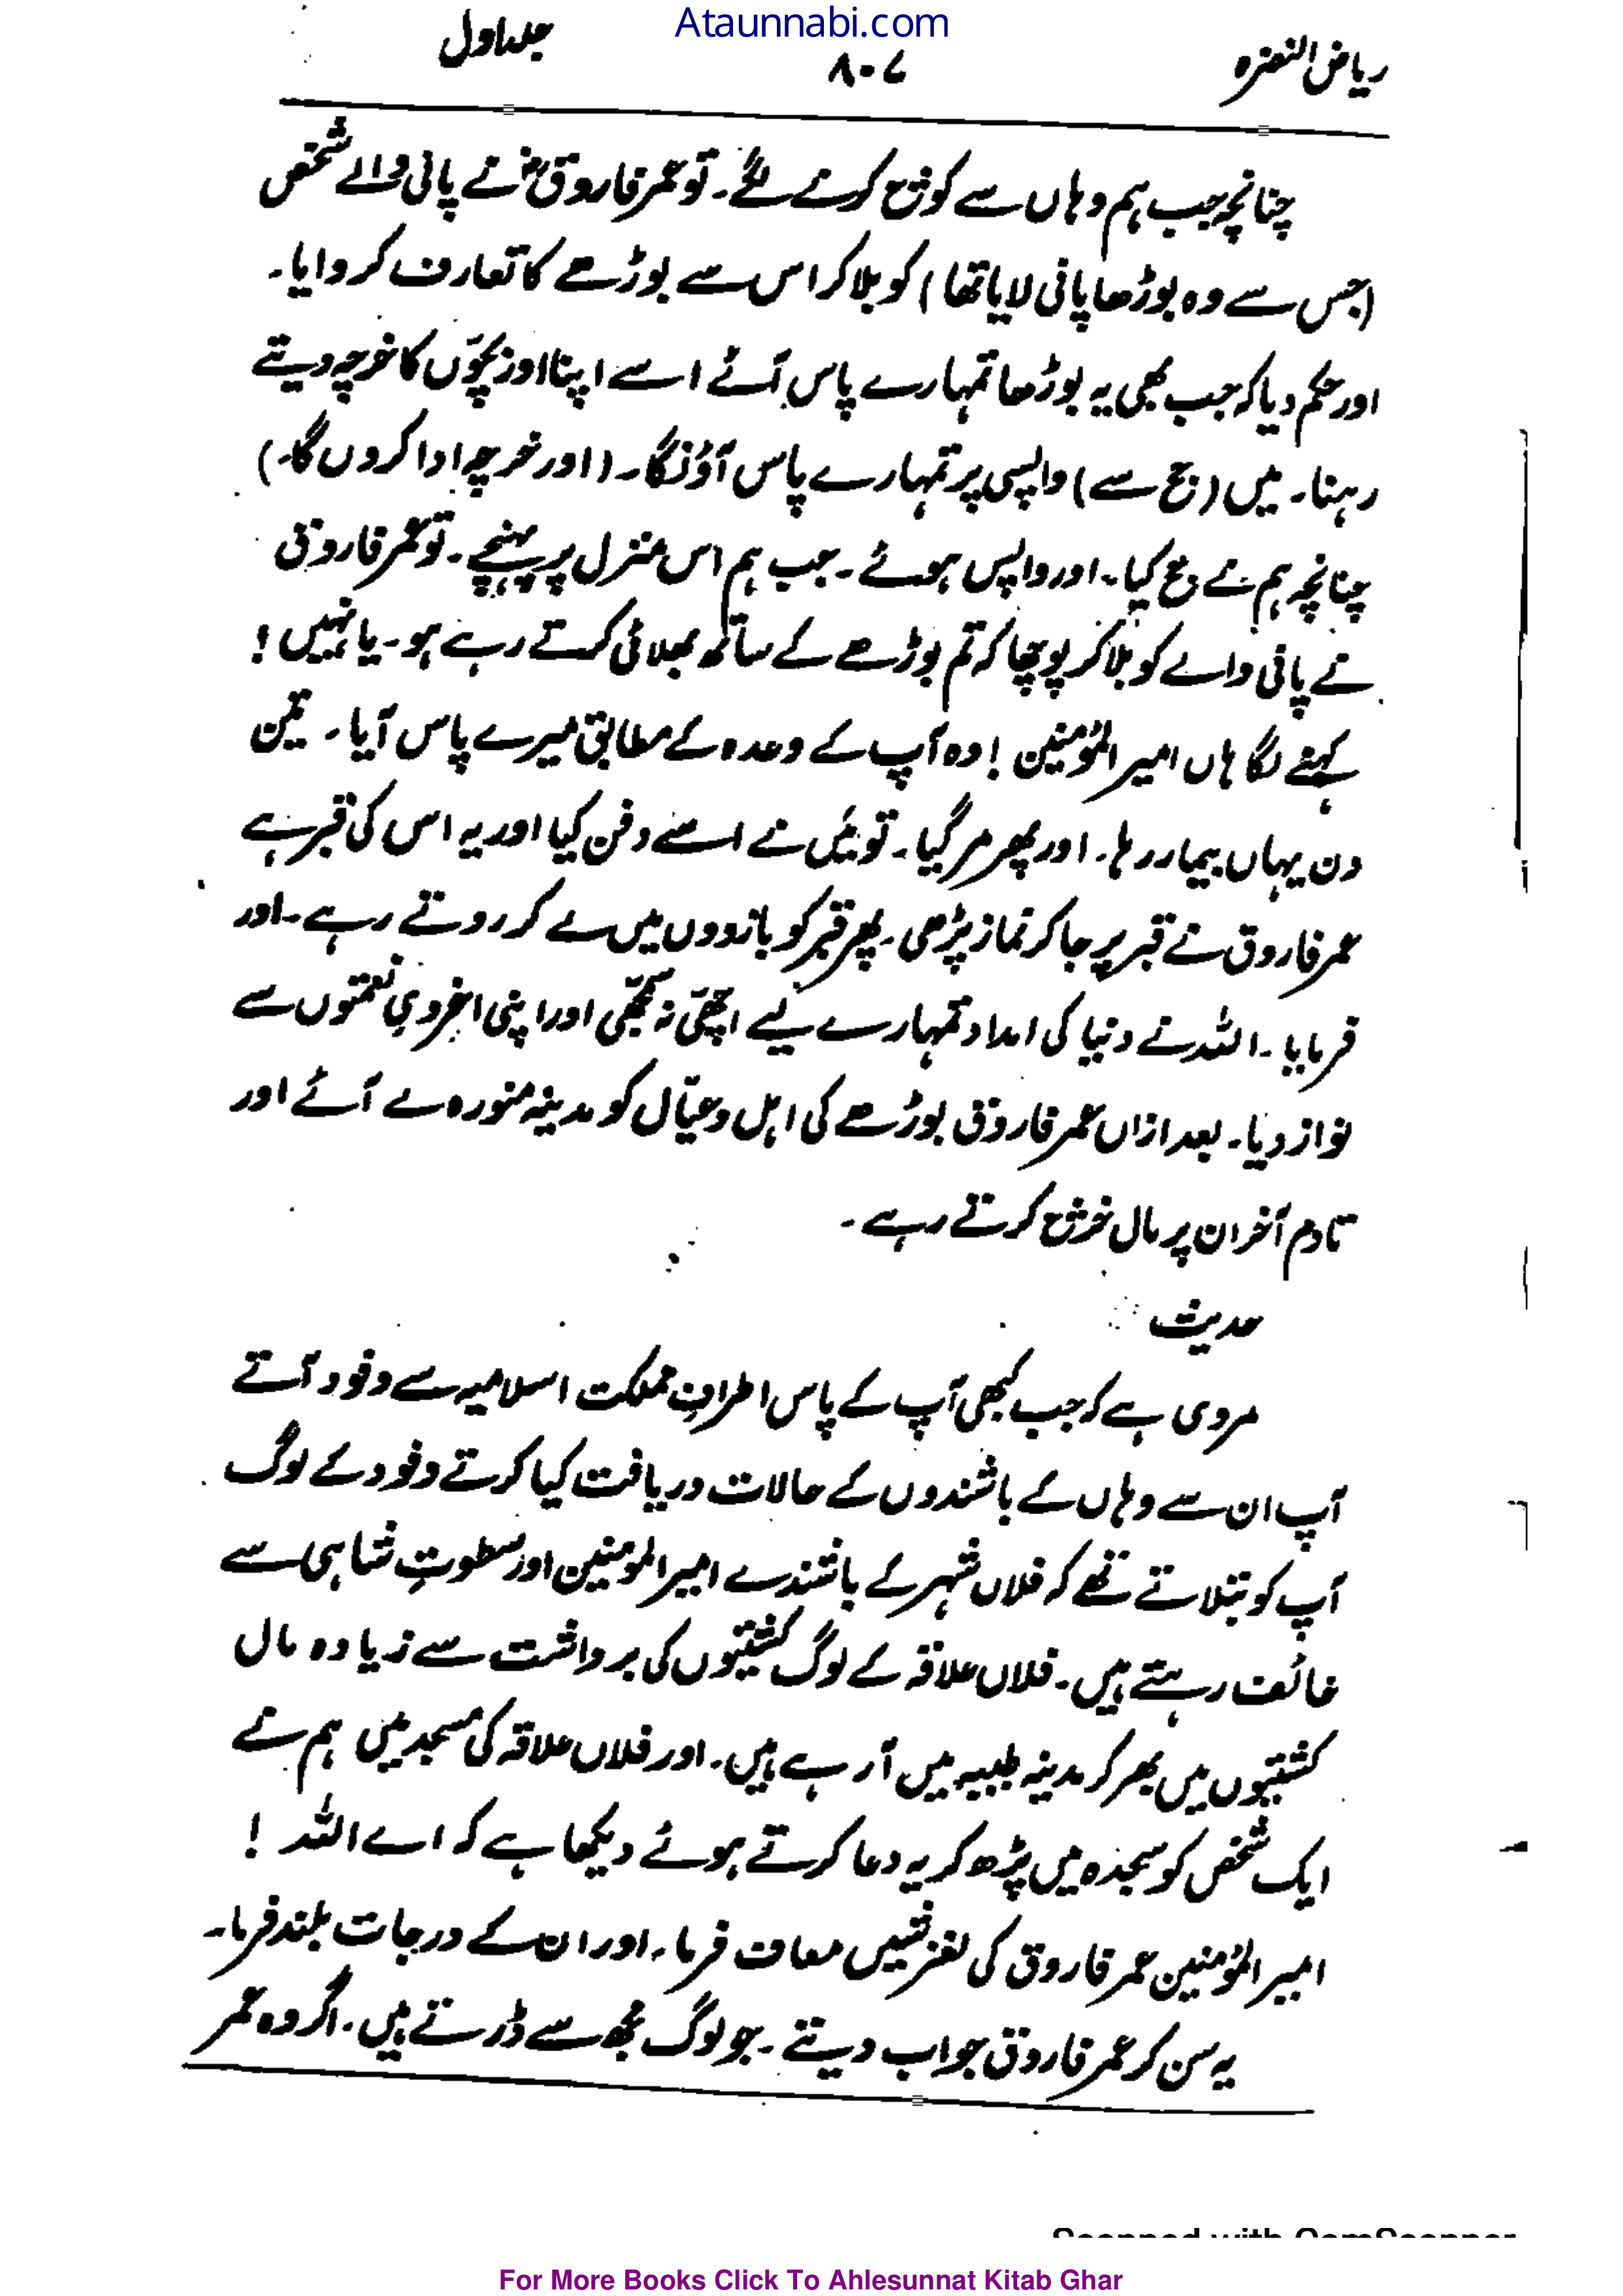 Ataunnabi.com
ریاض النضرہ ۸۰۷ جلد اول
چنانچہ جب ہم وہاں سے کوچ کرنے لگے۔ تو عمر فاروقؓ نے پانی والے شخص
(جس سے وہ بوڑھا پانی لایا تھا) کو بلا کر اس سے بوڑھے کا تعارف کروایا۔
اور حکم دیا کہ جب بھی یہ بوڑھا تمہارے پاس آئے اسے اپنا اور بچّوں کا خرچہ دیتے
رہنا۔ میں (حج سے) واپسی پر تمہارے پاس آؤنگا۔ (اور خرچہ ادا کروں گا۔)
چنانچہ ہم نے حج کیا۔ اور واپس ہوئے۔ جب ہم اس منزل پر پہنچے۔ تو عمر فاروق
نے پانی والے کو بلا کر پوچھا کہ تم بوڑھے کے ساتھ بھلائی کرتے رہے ہو۔ یا نہیں!
کہنے لگا ہاں امیر المؤمنین! وہ آپ کے وعدہ کے مطابق میرے پاس آیا۔ تین
دن یہاں بیمار رہا۔ اور پھر مر گیا۔ تو میں نے اسے دفن کیا اور یہ اس کی قبر ہے
عمر فاروق نے قبر پر جا کر نماز پڑھی۔ پھر قبر کو بازووں میں لے کر روتے رہے۔ اور
فرمایا۔ اللہ نے دنیا کی امداد تمہارے لیے اچھّی نہ سمجھّی اور اپنی اخروی نعمتوں سے
نواز دیا۔ بعد ازاں عمر فاروق بوڑھے کی اہل و عیال کو مدینہ منورہ لے آئے اور
تادم آخر ان پر مال خرچ کرتے رہے۔
حدیث
مروی ہے کہ جب کبھی آپ کے پاس اطرافِ مملکت اسلامیہ سے وفود آتے
آپ ان سے وہاں کے باشندوں کے حالات دریافت کیا کرتے وفود کے لوگ
آپ کو بتلاتے تھے کہ فلاں شہر کے باشندے امیر المومنین اور سطوتِ شاہی سے
خائف رہتے ہیں۔ فلاں علاقہ کے لوگ کشتیوں کی برداشت سے زیادہ مال
کشتیوں میں بھر کر مدینہ طیبہ میں آ رہے ہیں۔ اور فلاں علاقہ کی مسجد میں ہم نے
ایک شخص کو سجدہ میں پڑھ کر یہ دعا کرتے ہوئے دیکھا ہے کہ اے اللہ!
امیر المؤمنین عمر فاروق کی لغزشیں معاف فرما۔ اور ان کے درجات بلند فرما۔
یہ سن کر عمر فاروق جواب دیتے۔ جو لوگ مجھ سے ڈرتے ہیں۔ اگر وہ عمر
Scanned with CamScanner
For More Books Click To Ahlesunnat Kitab Ghar